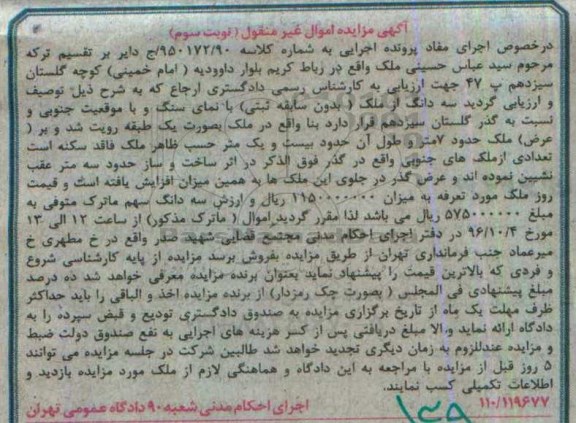 آگهی مزایده اموال غیر منقول (نوبت سوم)
درخصوص اجرای مفاد پرونده اجرایی به شماره کلاسه ۹۵۰۱۷۲/۹۰/ج دایر بر تقسیم ترکه
مرحوم سید عباس حسینی ملک واقع در رباط کریم بلوار داوودیه (امام خمینی) کوچه گلستان
سیزدهم پ ۴۷ جهت ارزیابی به کارشناس رسمی دادگستری ارجاع که به شرح ذیل توصیف
و ارزیابی گردید سه دانگ از ملک (بدون سابقه ثبتی) با نمای سنگ و با موقعیت جنوبی و
نسبت به گذر گلستان سیزدهم قرار دارد بنا واقع در ملک بصورت یک طبقه رویت شد و بر (
عرض) ملک حدود ۷متر و طول آن حدود بیست و یک متر حسب ظاهر ملک فاقد سکنه است
تعدادی ازملک های جنوبی واقع در گذر فوق الذکر در اثر ساخت و ساز حدود سه متر عقب
نشیین نموده اند و عرض گذر در جلوی این ملک ها به همین میزان افزایش یافته است و قیمت
روز ملک مورد تعرفه به میزان ۱۱۵۰۰۰۰۰۰۰ ریال و ارزش سه دانگ سهم ماترک متوفی به
مبلغ ۵۷۵۰۰۰۰۰۰ ریال می باشد لذا مقرر گردید اموال (ماترک مذکور) از ساعت ۱۲ الی ۱۳
مورخ ۹۶/۱۰/۴ در دفتر اجرای احکام مدنی مجتمع قضایی شهید صدر واقع در خ مطهری خ
میرعماد جنب فرمانداری تهران از طریق مزایده بفروش برسد مزایده از پایه کارشناسی شروع
و فردی که بالاترین قیمت را پیشنهاد نماید بعنوان برنده مزایده معرفی خواهد شد ده درصد
مبلغ پیشنهادی فی المجلس (بصورت چک رمزدار) از برنده مزایده اخذ و الباقی را باید حداکثر
ظرف مهلت یک ماه از تاریخ برگزاری مزایده به صندوق دادگستری تودیع و قبض سپرده را به
دادگاه ارائه نماید والا مبلغ دریافتی پس از کسر هزینه های اجرایی به نفع صندوق دولت ضبط
و مزایده عندللزوم به زمان دیگری تجدید خواهد شد طالبین شرکت در جلسه مزایده می توانند
۵ روز قبل از مزایده با مراجعه به این دادگاه و هماهنگی لازم از ملک مورد مزایده بازدید و
اطلاعات تکمیلی کسب نمایند.
۱۱۰/۱۱۹۶۷۷ اجرای احکام مدنی شعبه ۹۰ دادگاه عمومی تهران
۱۳۹